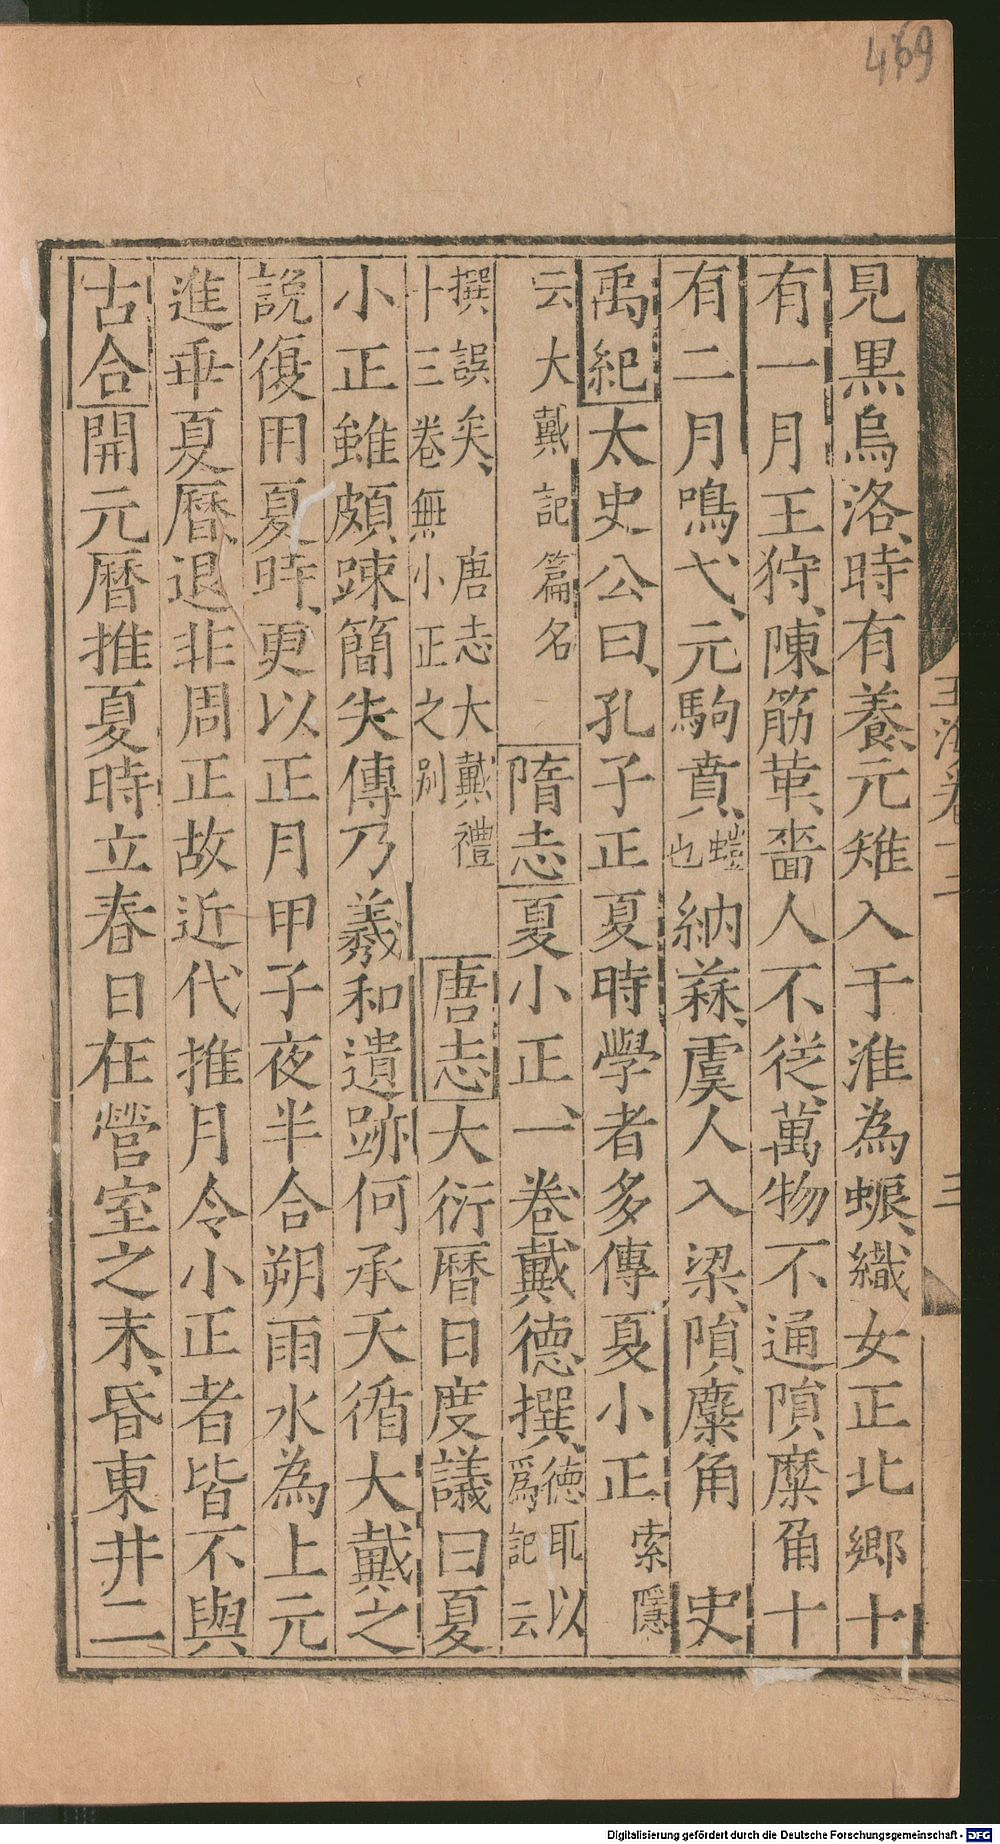 469
玉海卷十二 三
見黒烏浴時有養元雉入于淮為蜄織女正北鄉十
有一月王狩陳筋革嗇人不從萬物不通隕麋角十
有二月鳴弋元駒賁螘也納蒜虞人入梁隕麋角 史
禹紀太史公曰孔子正夏時學者多傳夏小正索隱
云大戴記篇名 隋志夏小正一卷戴德撰德取以為記云
撰誤矣 唐志大戴禮十三卷無小正之別 唐志大衍曆日度議曰夏
小正雖頗踈簡失傳乃羲和遺跡何承天循大戴之
說復用夏時更以正月甲子夜半合朔雨水為上元
進乖夏曆退非周正故近代推月令小正者皆不與
古合開元曆推夏時立春日在營室之末昏東井二
Digitalisierung gefördert durch die Deutsche Forschungsgemeinschaft - DFG